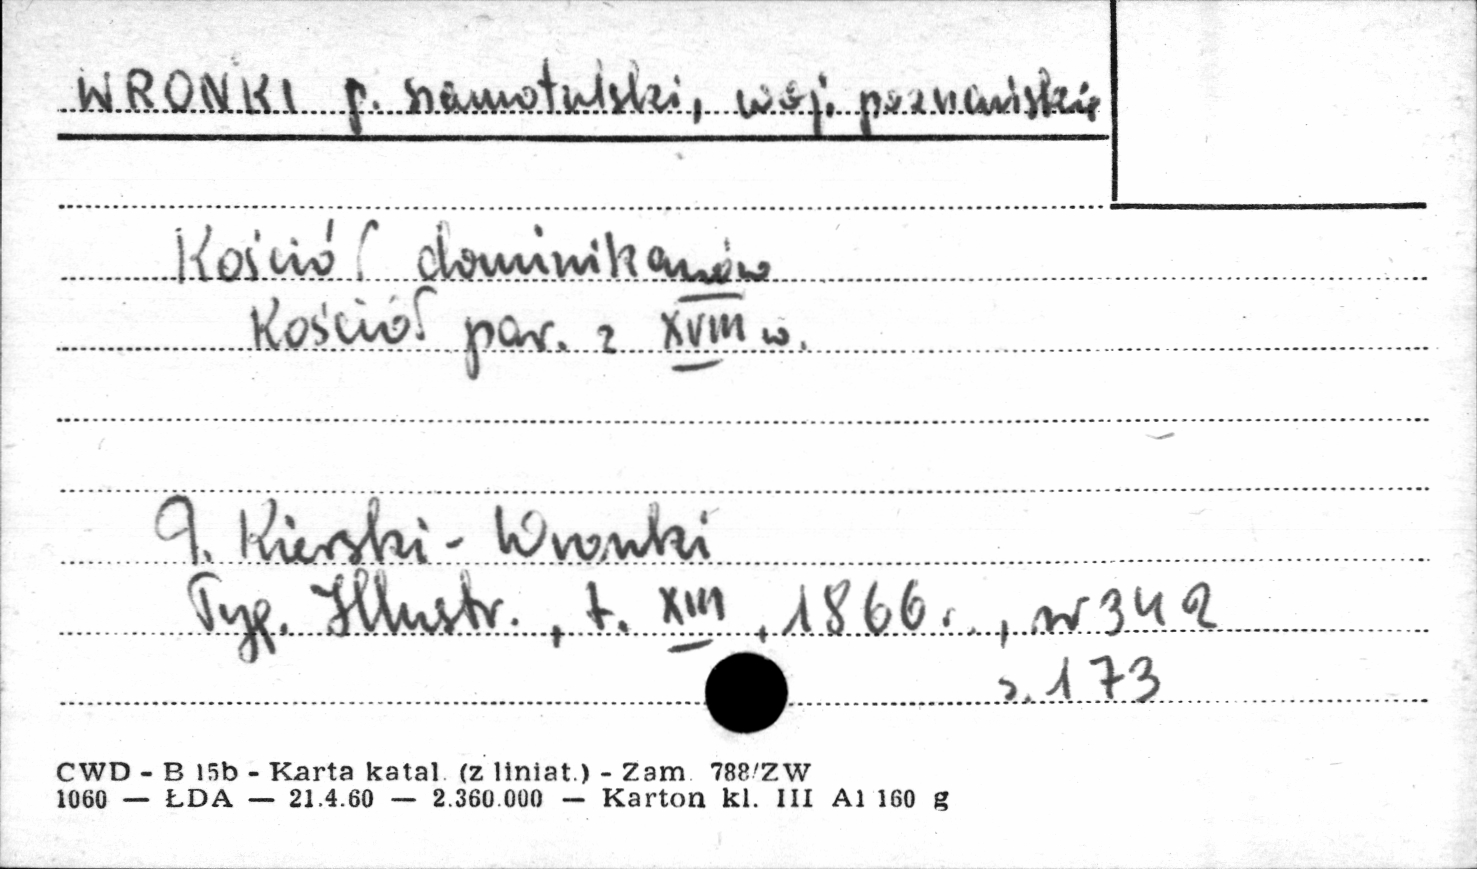 WRONKI p. szamotulski, woj. poznańskie
Kościół dominikanów
Kościół par. z XVIII w.
J. Kierski - Wronki
Tyg. Illustr., t. XIII, 1866 r., nr 342
s. 173
CWD - B 15b - Karta katal. (z liniat.) - Zam. 788/ZW
1060 — ŁDA — 21.4.60 — 2.360.000 — Karton kl. III A1 160 g